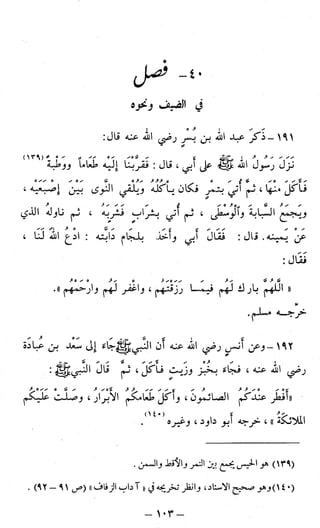 ٤٠- فصل
في الضيف ونحوه
١٩١- ذكر عبد الله بن بُسْرٍ رضي الله عنه قال:
نَزَلَ رَسُولُ اللهِ ﷺ على أبي، قال: فَقَرَّبْنَا إِلَيْهِ طَعَاماً وَوَطْبَةً(١٣٩)
فَأَكَلَ مِنْهَا، ثُمَّ أُتِيَ بِتَمْرٍ فَكَانَ يَأْكُلُهُ وَيُلْقِي النَّوَى بَيْنَ إِصْبَعَيْهِ،
وَيَجْمَعُ السَّبَّابَةَ وَالْوُسْطَى، ثم أُتي بِشَرَابٍ فَشَرِبَهُ، ثم نَاوَلَهُ الذي
عَنْ يَمِينِهِ. قال: فَقَالَ أَبي وَأَخَذَ بِلِجَامِ دَابَّتِهِ: ادْعُ اللهَ لَنَا،
فَقَالَ:
« اللَّهُمَّ بَارِكْ لَهُم فِيمَا رَزَقْتَهُم، وَاغْفِرْ لَهُم وَارْحَمْهُم ».
خرَّجه مسلم.
١٩٢- وعن أنس رضي الله عنه أن النبيَّ ﷺ جَاءَ إلى سَعْدِ بن عُبَادَةَ
رضي الله عنه، فَجَاءَ بِخُبْزٍ وَزَيْتٍ فَأَكَلَ، ثُمَّ قَالَ النَّبيُّ ﷺ:
«أَفْطَرَ عِنْدَكُمُ الصَّائِمُونَ، وَأَكَلَ طَعَامَكُمُ الأَبْرَارُ، وَصَلَّتْ عَلَيْكُمُ
المَلائِكَةُ »، خرجه أبو داود، وغيره(١٤٠).
(١٣٩) هو الحيس يجمع بين التمر والأقط والسمن.
(١٤٠) وهو صحيح الاسناد، وانظر تخريجه في « آداب الزفاف» (ص ٩١ - ٩٢).
- ١٠٣ -